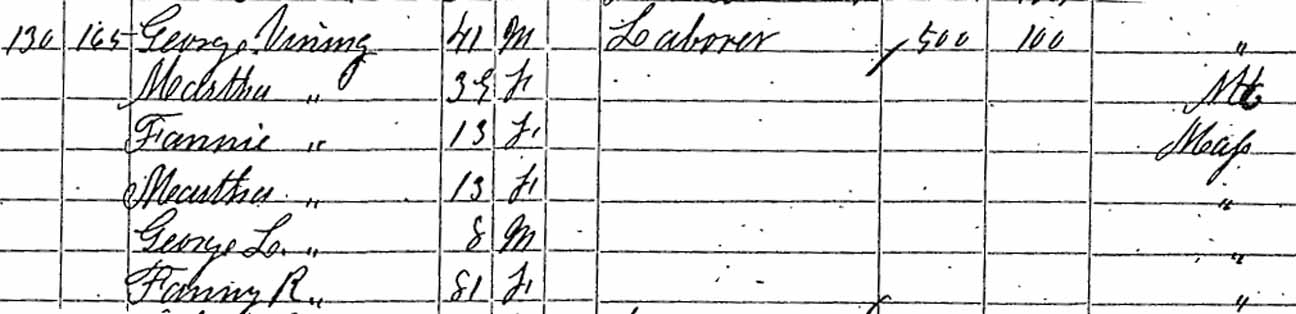 130 165 George Vining 41 M Laborer 500 100 "
Martha " 39 F
Fannie " 13 F Mass
Martha " 13 F "
George L. " 8 M "
Fanny R " 81 F "